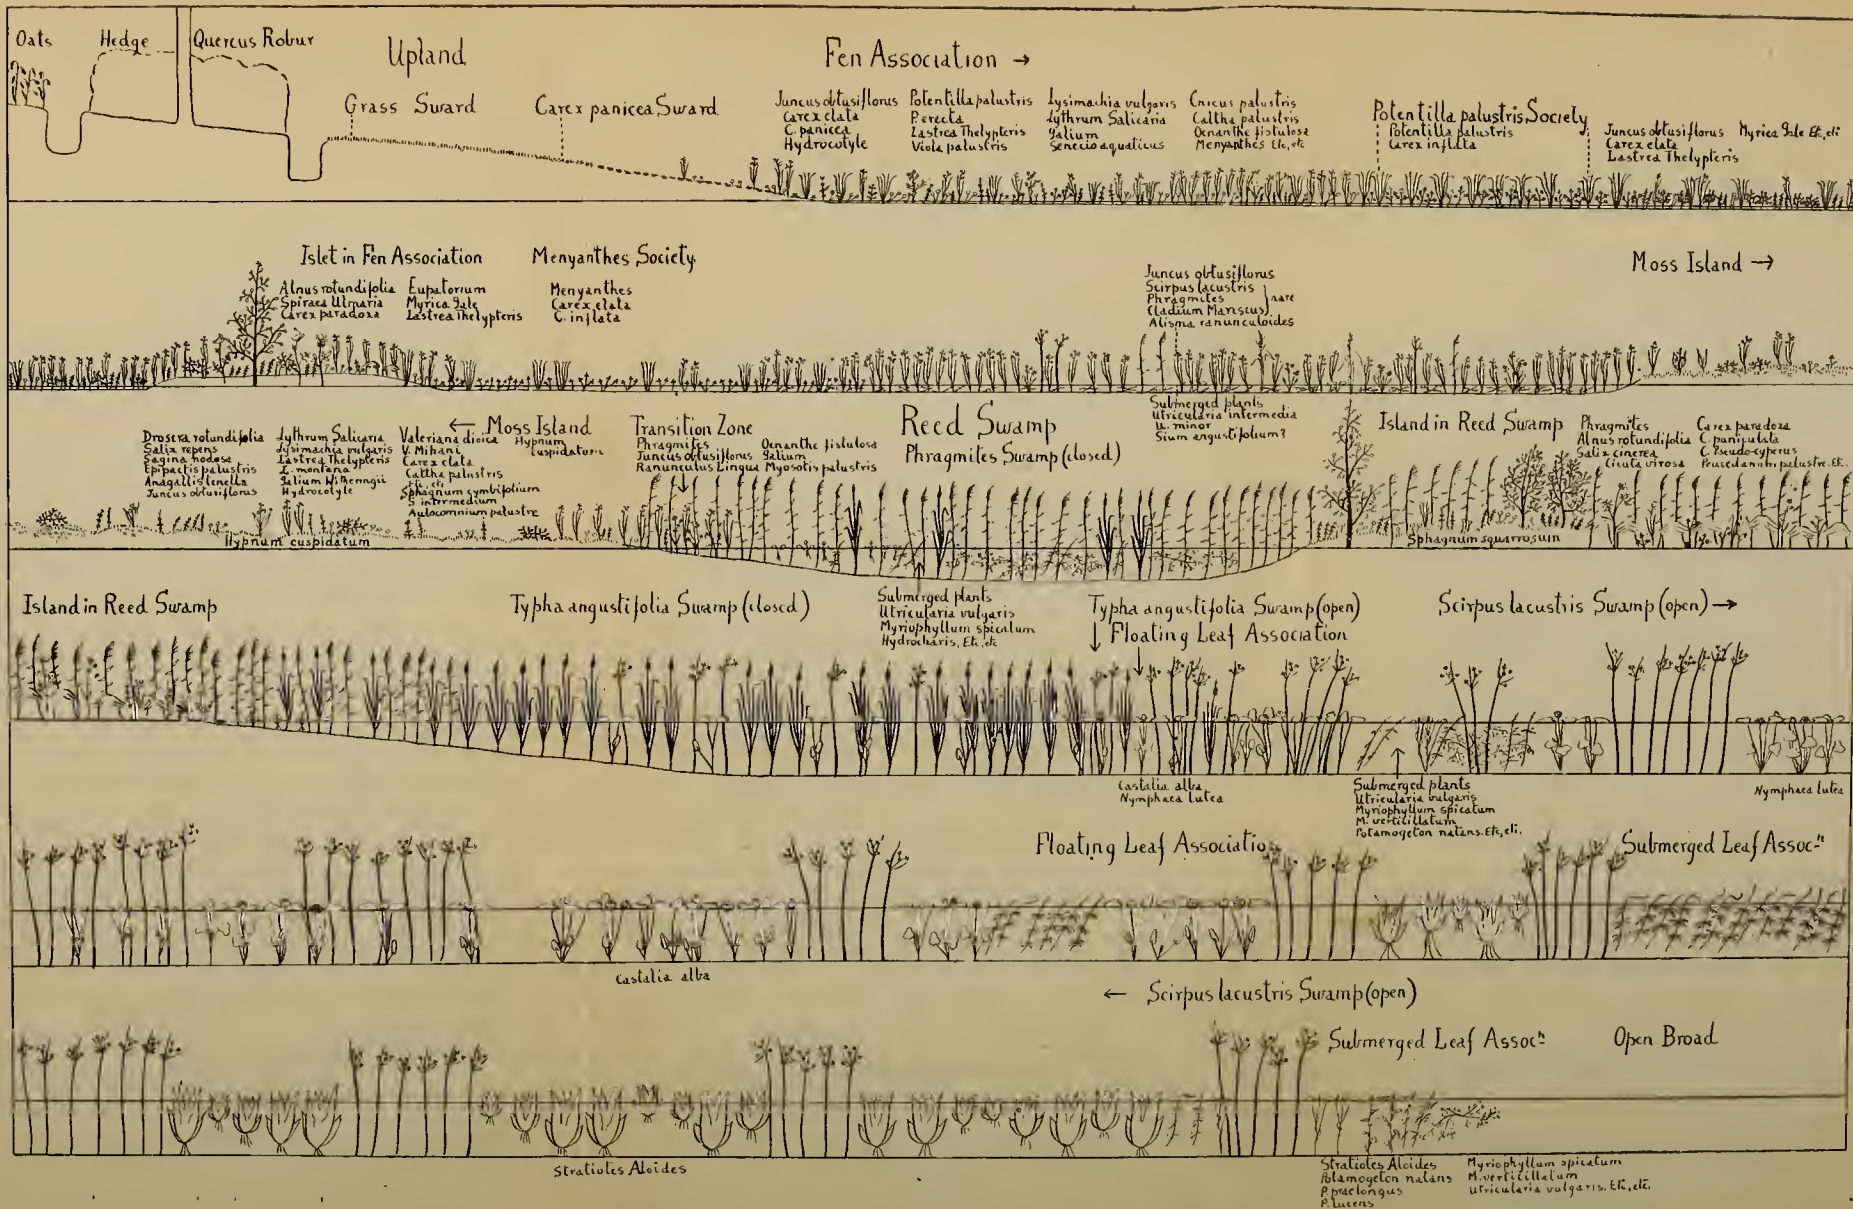 Oats
Hedge
Quercus Robur
Upland
Fen Association →
Grass Sward
Carex panicea Sward
Juncus obtusiflorus
Carex elata
C. panicea
Hydrocotyle
Potentilla palustris
P. erecta
Lastrea Thelypteris
Viola palustris
Lysimachia vulgaris
Lythrum Salicaria
Galium
Senecio aquaticus
Cnicus palustris
Caltha palustris
Oenanthe fistulosa
Menyanthes Etc, etc
Potentilla palustris Society
Potentilla palustris
Carex inflata
Juncus obtusiflorus
Carex elata
Lastrea Thelypteris
Myrica Gale Etc, etc
Islet in Fen Association
Alnus rotundifolia
Spiraea Ulmaria
Carex paradoxa
Eupatorium
Myrica Gale
Lastrea Thelypteris
Menyanthes Society
Menyanthes
Carex elata
C. inflata
Juncus obtusiflorus
Scirpus lacustris
Phragmites
Cladium Mariscus
rare
Alisma ranunculoides
Moss Island →
Submerged plants
Utricularia intermedia
U. minor
Sium angustifolium?
← Moss Island
Drosera rotundifolia
Salix repens
Sagina nodosa
Epipactis palustris
Anagallis tenella
Juncus obtusiflorus
Lythrum Salicaria
Lysimachia vulgaris
Lastrea Thelypteris
L. montana
Galium Witheringii
Hydrocotyle
Valeriana dioica
V. Mikani
Carex elata
Caltha palustris
Etc, etc
Sphagnum cymbifolium
S. intermedium
Aulacomnium palustre
Hypnum
cuspidatum
Hypnum cuspidatum
Transition Zone
Phragmites
Juncus obtusiflorus
Ranunculus Lingua
Oenanthe fistulosa
Galium
Myosotis palustris
Reed Swamp
Phragmites Swamp (closed)
Island in Reed Swamp
Phragmites
Alnus rotundifolia
Salix cinerea
Cicuta virosa
Carex paradoxa
C. paniculata
C. Pseudo-cyperus
Peucedanum palustre. Etc.
Sphagnum squarrosum
Island in Reed Swamp
Typha angustifolia Swamp (closed)
Submerged plants
Utricularia vulgaris
Myriophyllum spicatum
Hydrocharis, Etc, etc
Typha angustifolia Swamp (open)
↓ Floating Leaf Association
Scirpus lacustris Swamp (open) →
Castalia alba
Nymphaea lutea
Submerged plants
Utricularia vulgaris
Myriophyllum spicatum
M. verticillatum
Potamogeton natans. Etc, etc.
Nymphaea lutea
Floating Leaf Association
Submerged Leaf Assocⁿ
Castalia alba
← Scirpus lacustris Swamp (open)
Submerged Leaf Assocⁿ
Open Broad
Stratiotes Aloides
Stratiotes Aloides
Potamogeton natans
P. praelongus
P. lucens
Myriophyllum spicatum
M. verticillatum
Utricularia vulgaris. Etc, etc.